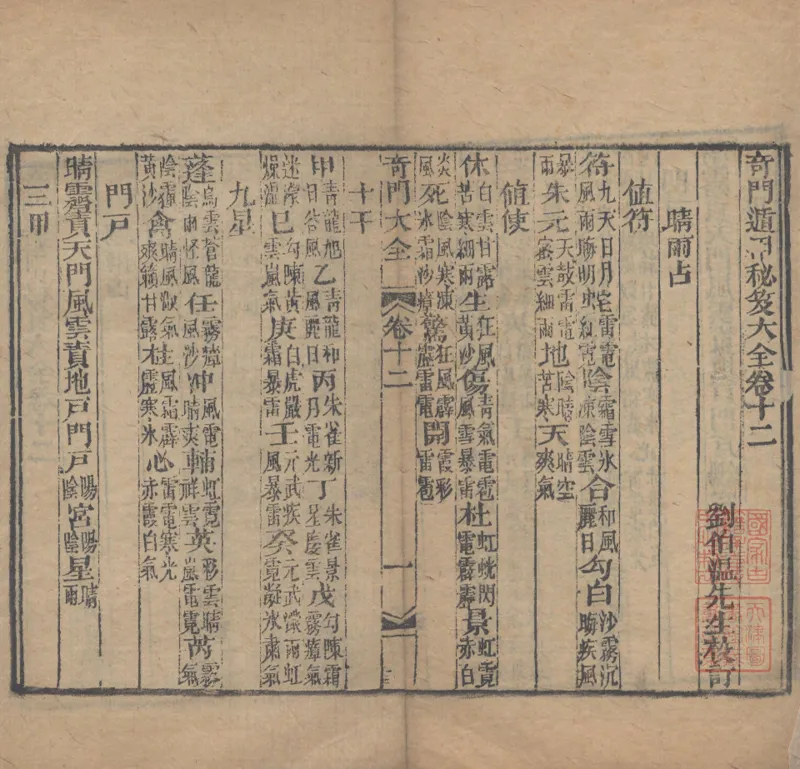 奇門遁甲秘笈大全卷十二
劉伯溫先生校訂
晴雨占
值符
符九天日月雷電風雨晦明虹電陰霜雪氷凍陰雲合和風麗日勾白沙霧沉晦疾風
暴雨朱元天鼓雷電密雲細雨地陰晴苦寒天晴空爽氣
値使
休白雲甘露苦寒細雨生狂風黃沙傷青氣電雹風雪暴雷杜虹閃電霹景虹霓赤白
炎風死陰風寒凍氷霜沙瘴驚狂風霹靂雷電開霞彩雷雹
奇門大全 卷十二 一
十干
甲青龍旭日谷風乙青龍和風麗日丙朱雀新月電光丁朱雀景星慶雲戊勾陳霜霧瘴氣
迷濛燥濕己勾陳黃雲嵐氣庚白虎嚴霜暴雷壬元武疾風暴雷癸元武雨虹霓凝氷肅氣
九星
蓬烏雲蒼龍陰雨怪風任霧瘴黃沙冲風電晴爽輔虹霓祥雲英彩雲晴嵐電霓芮霧氣
陰霾黃沙禽晴風和氣爽籟甘露柱風霜霹靂寒氷心雷電寒光赤霞白氣
門戶
晴霽責天門風雲責地戶門戶陽陰宮陽陰星晴雨
三甲